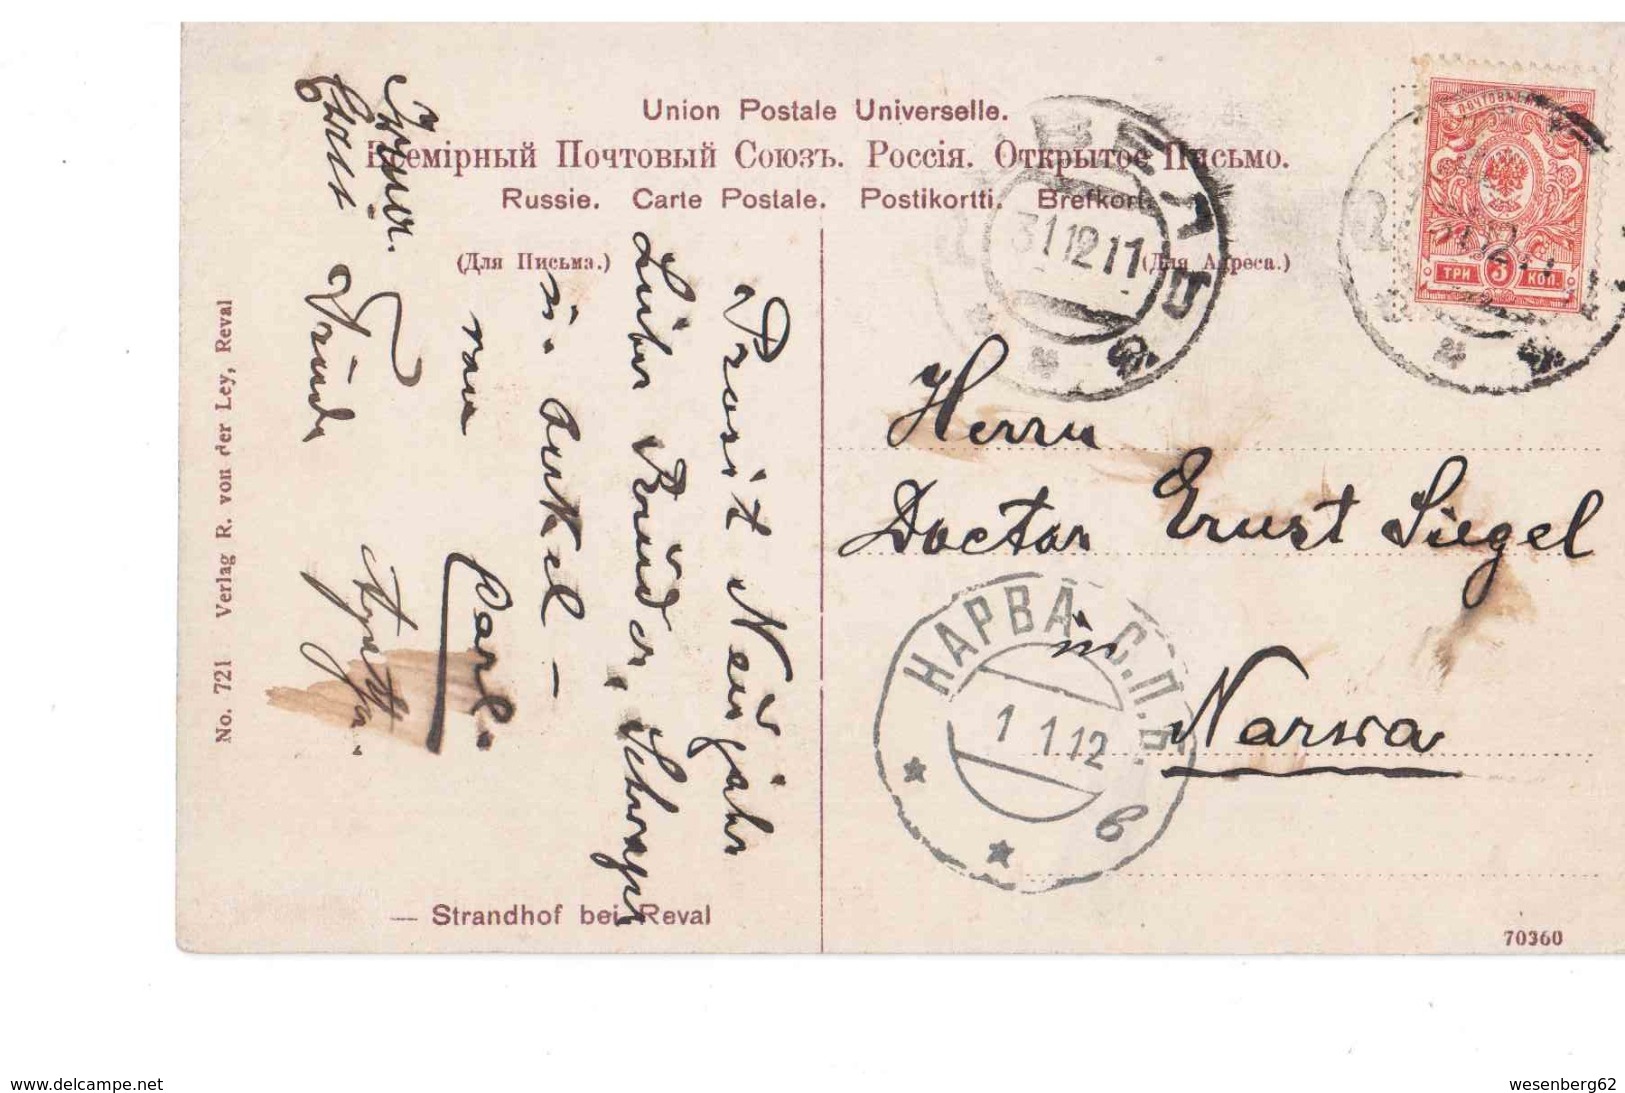 Union Postale Universelle.
Всемірный Почтовый Союзъ. Россія. Открытое Письмо.
Russie. Carte Postale. Postikortti. Brefkort.
(Для Письма.)
(Для Адреса.)
ПОЧТОВАЯ
ТРИ 3 КОП.
РЕВЕЛЬ
31 12 11
Herrn
Doctor Ernst Siegel
in
Narwa
НАРВА С.П.Б.
1 1 12
в
Prosit Neujahr
Lieber Bruder, Schwager
u. Onkel –
von
Carl.
No. 721 Verlag R. von der Ley, Reval
— Strandhof bei Reval
70360
www.delcampe.net
wesenberg62